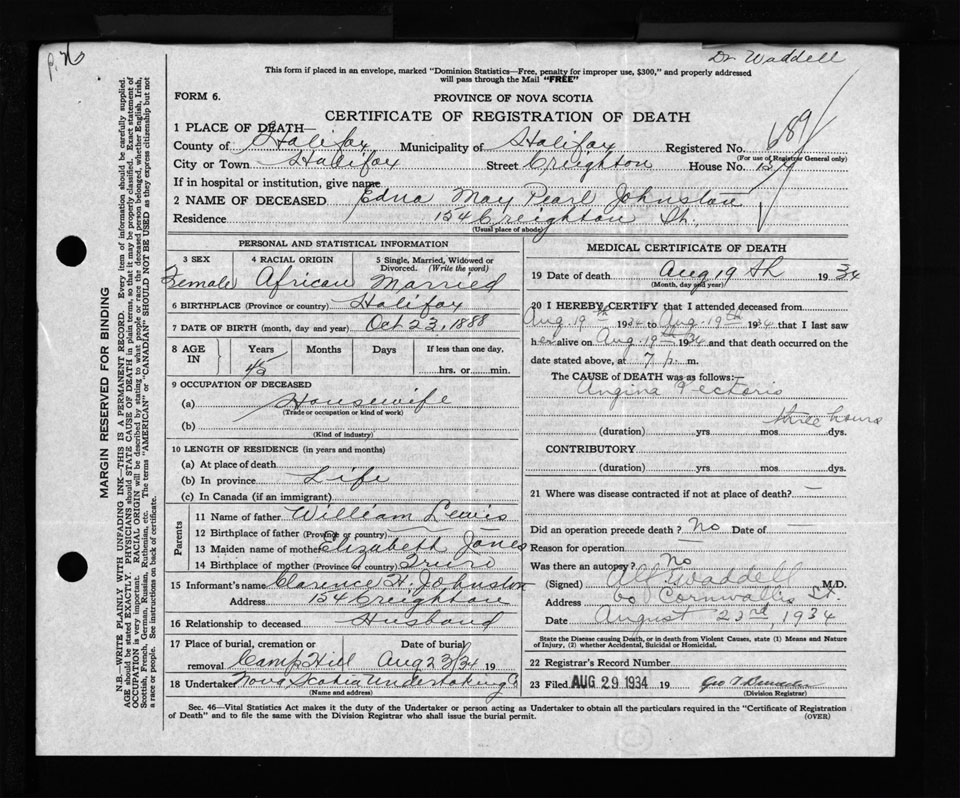 p. 76
Dr Waddell
This form if placed in an envelope, marked "Dominion Statistics—Free, penalty for improper use, $300," and properly addressed
will pass through the Mail "FREE"
FORM 6.
PROVINCE OF NOVA SCOTIA
CERTIFICATE OF REGISTRATION OF DEATH
1 PLACE OF DEATH—
County of Halifax Municipality of Halifax Registered No. 689
(For use of Registrar General only)
City or Town Halifax Street Creighton House No. 154
If in hospital or institution, give name
2 NAME OF DECEASED Edna May Pearl Johnston
Residence 154 Creighton St.
(Usual place of abode)
PERSONAL AND STATISTICAL INFORMATION
3 SEX 4 RACIAL ORIGIN 5 Single, Married, Widowed or
Divorced. (Write the word)
Female African Married
6 BIRTHPLACE (Province or country) Halifax
7 DATE OF BIRTH (month, day and year) Oct 23, 1888
8 AGE IN Years Months Days If less than one day.
45 hrs. or min.
9 OCCUPATION OF DECEASED
(a) Housewife
(Trade or occupation or kind of work)
(b)
(Kind of industry)
10 LENGTH OF RESIDENCE (in years and months)
(a) At place of death
(b) In province Life
(c) In Canada (if an immigrant)
Parents
11 Name of father William Lewis
12 Birthplace of father (Province or country)
13 Maiden name of mother Elizabeth Jones
14 Birthplace of mother (Province or country) Truro
15 Informant's name Clarence H. Johnston
Address 154 Creighton
16 Relationship to deceased Husband
17 Place of burial, cremation or Date of burial
removal Camp Hill Aug 23/34 19
18 Undertaker Nova Scotia Undertaking Co
(Name and address)
MEDICAL CERTIFICATE OF DEATH
19 Date of death Aug 19th 1934
(Month, day and year)
20 I HEREBY CERTIFY that I attended deceased from
Aug. 19th 1934 to Aug. 19th 1934 that I last saw
her alive on Aug. 19th 1934 and that death occurred on the
date stated above, at 7 p. m.
The CAUSE of DEATH was as follows:—
Angina Pectoris
three hours
(duration) yrs. mos. dys.
CONTRIBUTORY
(duration) yrs. mos. dys.
21 Where was disease contracted if not at place of death? —
Did an operation precede death? No Date of —
Reason for operation —
Was there an autopsy? No
(Signed) Alf Waddell M.D.
Address 60 Cornwallis St.
Date August 23rd, 1934
State the Disease causing Death, or in death from Violent Causes, state (1) Means and Nature
of Injury, (2) whether Accidental, Suicidal or Homicidal.
22 Registrar's Record Number
23 Filed AUG 29 1934 19
(Division Registrar)
Sec. 46—Vital Statistics Act makes it the duty of the Undertaker or person acting as Undertaker to obtain all the particulars required in the "Certificate of Registration
of Death" and to file the same with the Division Registrar who shall issue the burial permit.
(OVER)
MARGIN RESERVED FOR BINDING
N.B.—WRITE PLAINLY WITH UNFADING INK—THIS IS A PERMANENT RECORD. Every item of information should be carefully supplied.
AGE should be stated EXACTLY. PHYSICIANS should STATE CAUSE OF DEATH in plain terms, so that it may be properly classified. Exact statement of
OCCUPATION is very important. RACIAL ORIGIN will be described by stating to what people or race the deceased person belonged, whether English, Irish,
Scottish, French, German, Russian, Ruthenian, etc. The terms "AMERICAN" or "CANADIAN" SHOULD NOT BE USED as they express citizenship but not
a race or people. See instructions on back of certificate.